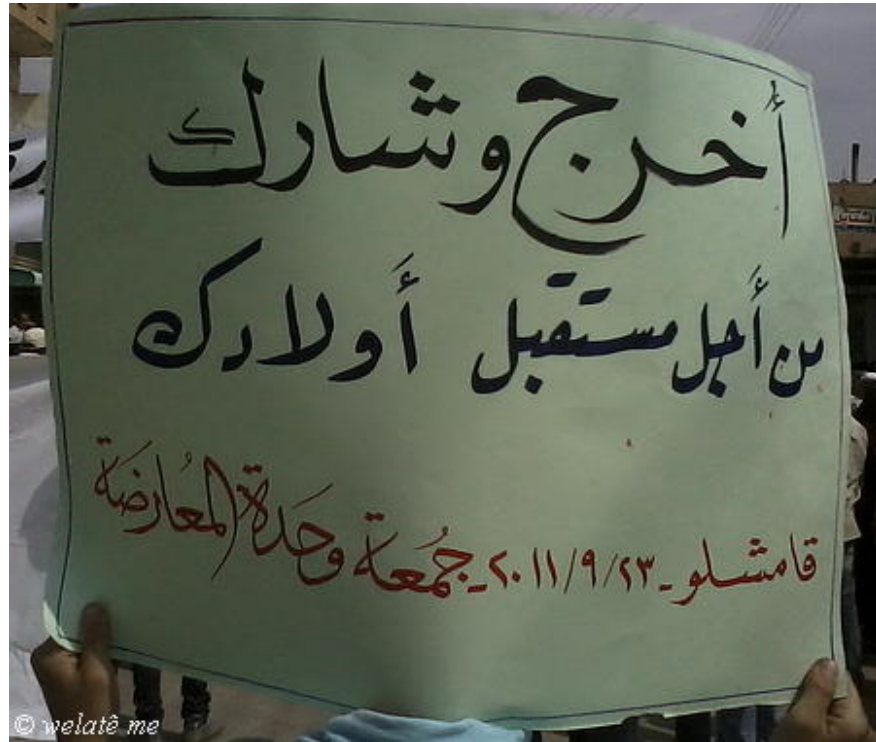 أُخرج وشارك
من أجل مستقبل أولادك
قامشلو - ٢٠١١/٩/٢٣ - جمُعة وحَدة المعُارضَة
© welatê me